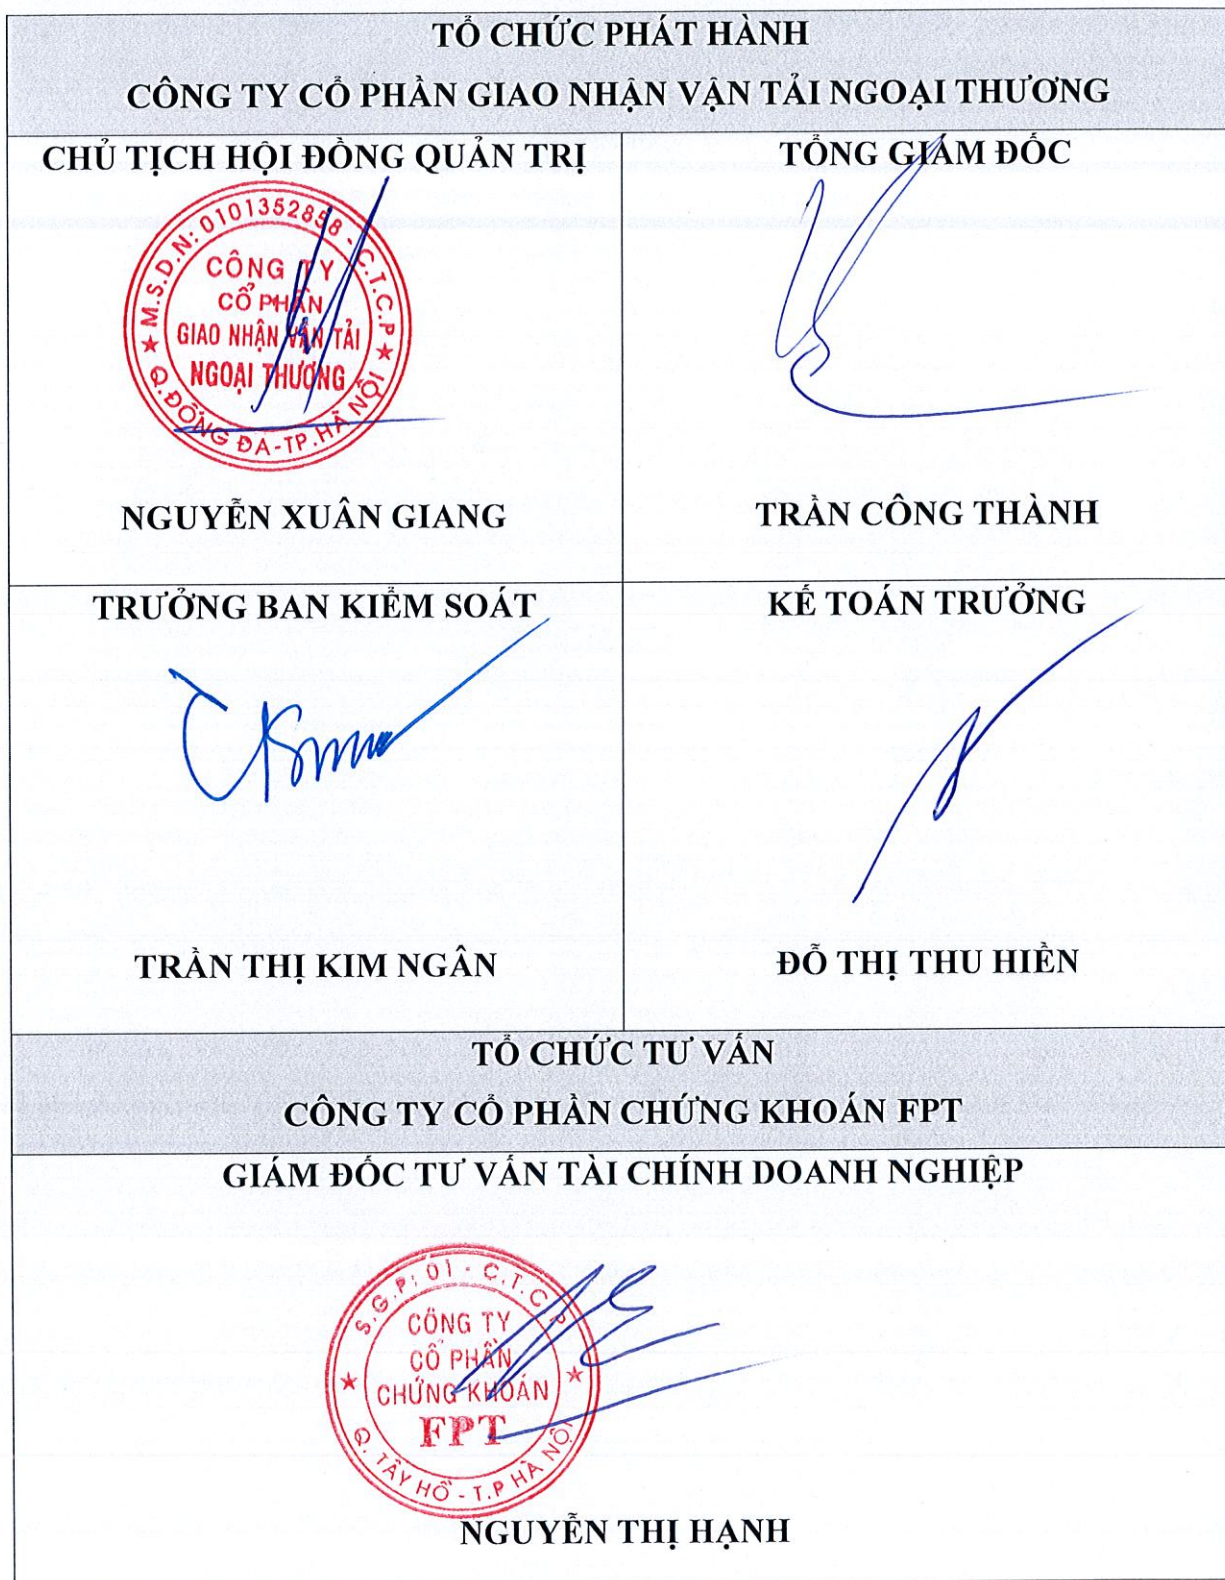 TỔ CHỨC PHÁT HÀNH
CÔNG TY CỔ PHẦN GIAO NHẬN VẬN TẢI NGOẠI THƯƠNG
CHỦ TỊCH HỘI ĐỒNG QUẢN TRỊ
M.S.D.N: 0101352858 - C.T.C.P
CÔNG TY
CỔ PHẦN
GIAO NHẬN VẬN TẢI
NGOẠI THƯƠNG
Q.ĐỐNG ĐA-TP.HÀ NỘI
NGUYỄN XUÂN GIANG
TỔNG GIÁM ĐỐC
TRẦN CÔNG THÀNH
TRƯỞNG BAN KIỂM SOÁT
TRẦN THỊ KIM NGÂN
KẾ TOÁN TRƯỞNG
ĐỖ THỊ THU HIỀN
TỔ CHỨC TƯ VẤN
CÔNG TY CỔ PHẦN CHỨNG KHOÁN FPT
GIÁM ĐỐC TƯ VẤN TÀI CHÍNH DOANH NGHIỆP
S.G.P: 01 - C.T.C.P
CÔNG TY
CỔ PHẦN
CHỨNG KHOÁN
FPT
Q. TÂY HỒ - T.P HÀ NỘI
NGUYỄN THỊ HẠNH